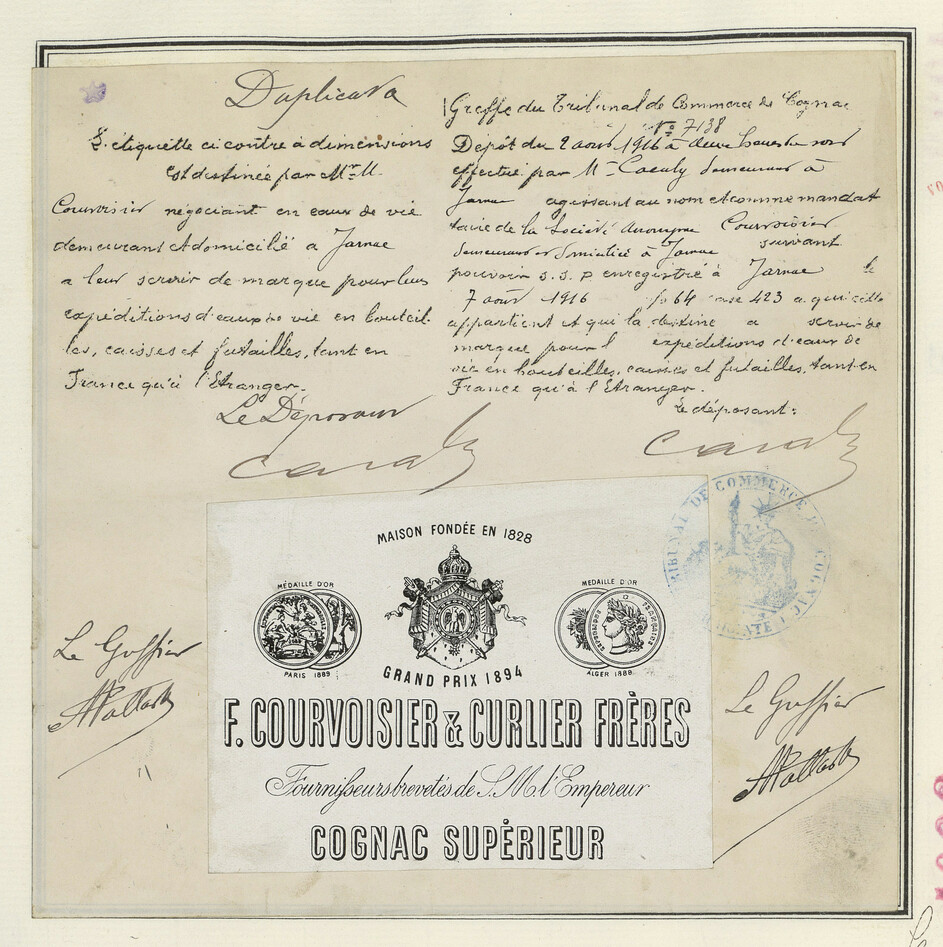 Duplicata
L'étiquette ci contre à dimensions
est destinée par Mr M.
Courvoisier négociant en eaux de vie
demeurant et domicilié a Jarnac
a leur servir de marque pour leurs
expéditions d'eaux de vie en bouteil
les, caisses et futailles, tant en
France qu'à l'Etranger.
Le Déposant
Greffe du Tribunal de Commerce de Cognac
No 7138
Depôt du 2 aout 1916 à deux heures du soir
effectué par Mr demeurant à
Jarnac agissant au nom et comme mandat
taire de la Société Anonyme Courvoisier
Jarnac suivant
pouvoir s.s.p enregistré à Jarnac le
7 aout 1916 fo 64 case 423 a qui elle
appartient et qui la destine a servir de
marque pour l expéditions d'eaux de
vie en bouteilles, caisses et futailles, tant en
France qu'à l'Etranger.
Le déposant:
TRIBUNAL DE COMMERCE DE COGNAC
MAISON FONDÉE EN 1828
MÉDAILLE D'OR
PARIS 1889
GRAND PRIX 1894
MEDAILLE D'OR
REPUBLIQUE FRANÇAISE
ALGER 1888
F. COURVOISIER & CURLIER FRÈRES
Fournisseurs brevetés de S. M. l'Empereur
COGNAC SUPÉRIEUR
Le Greffier
Le Greffier